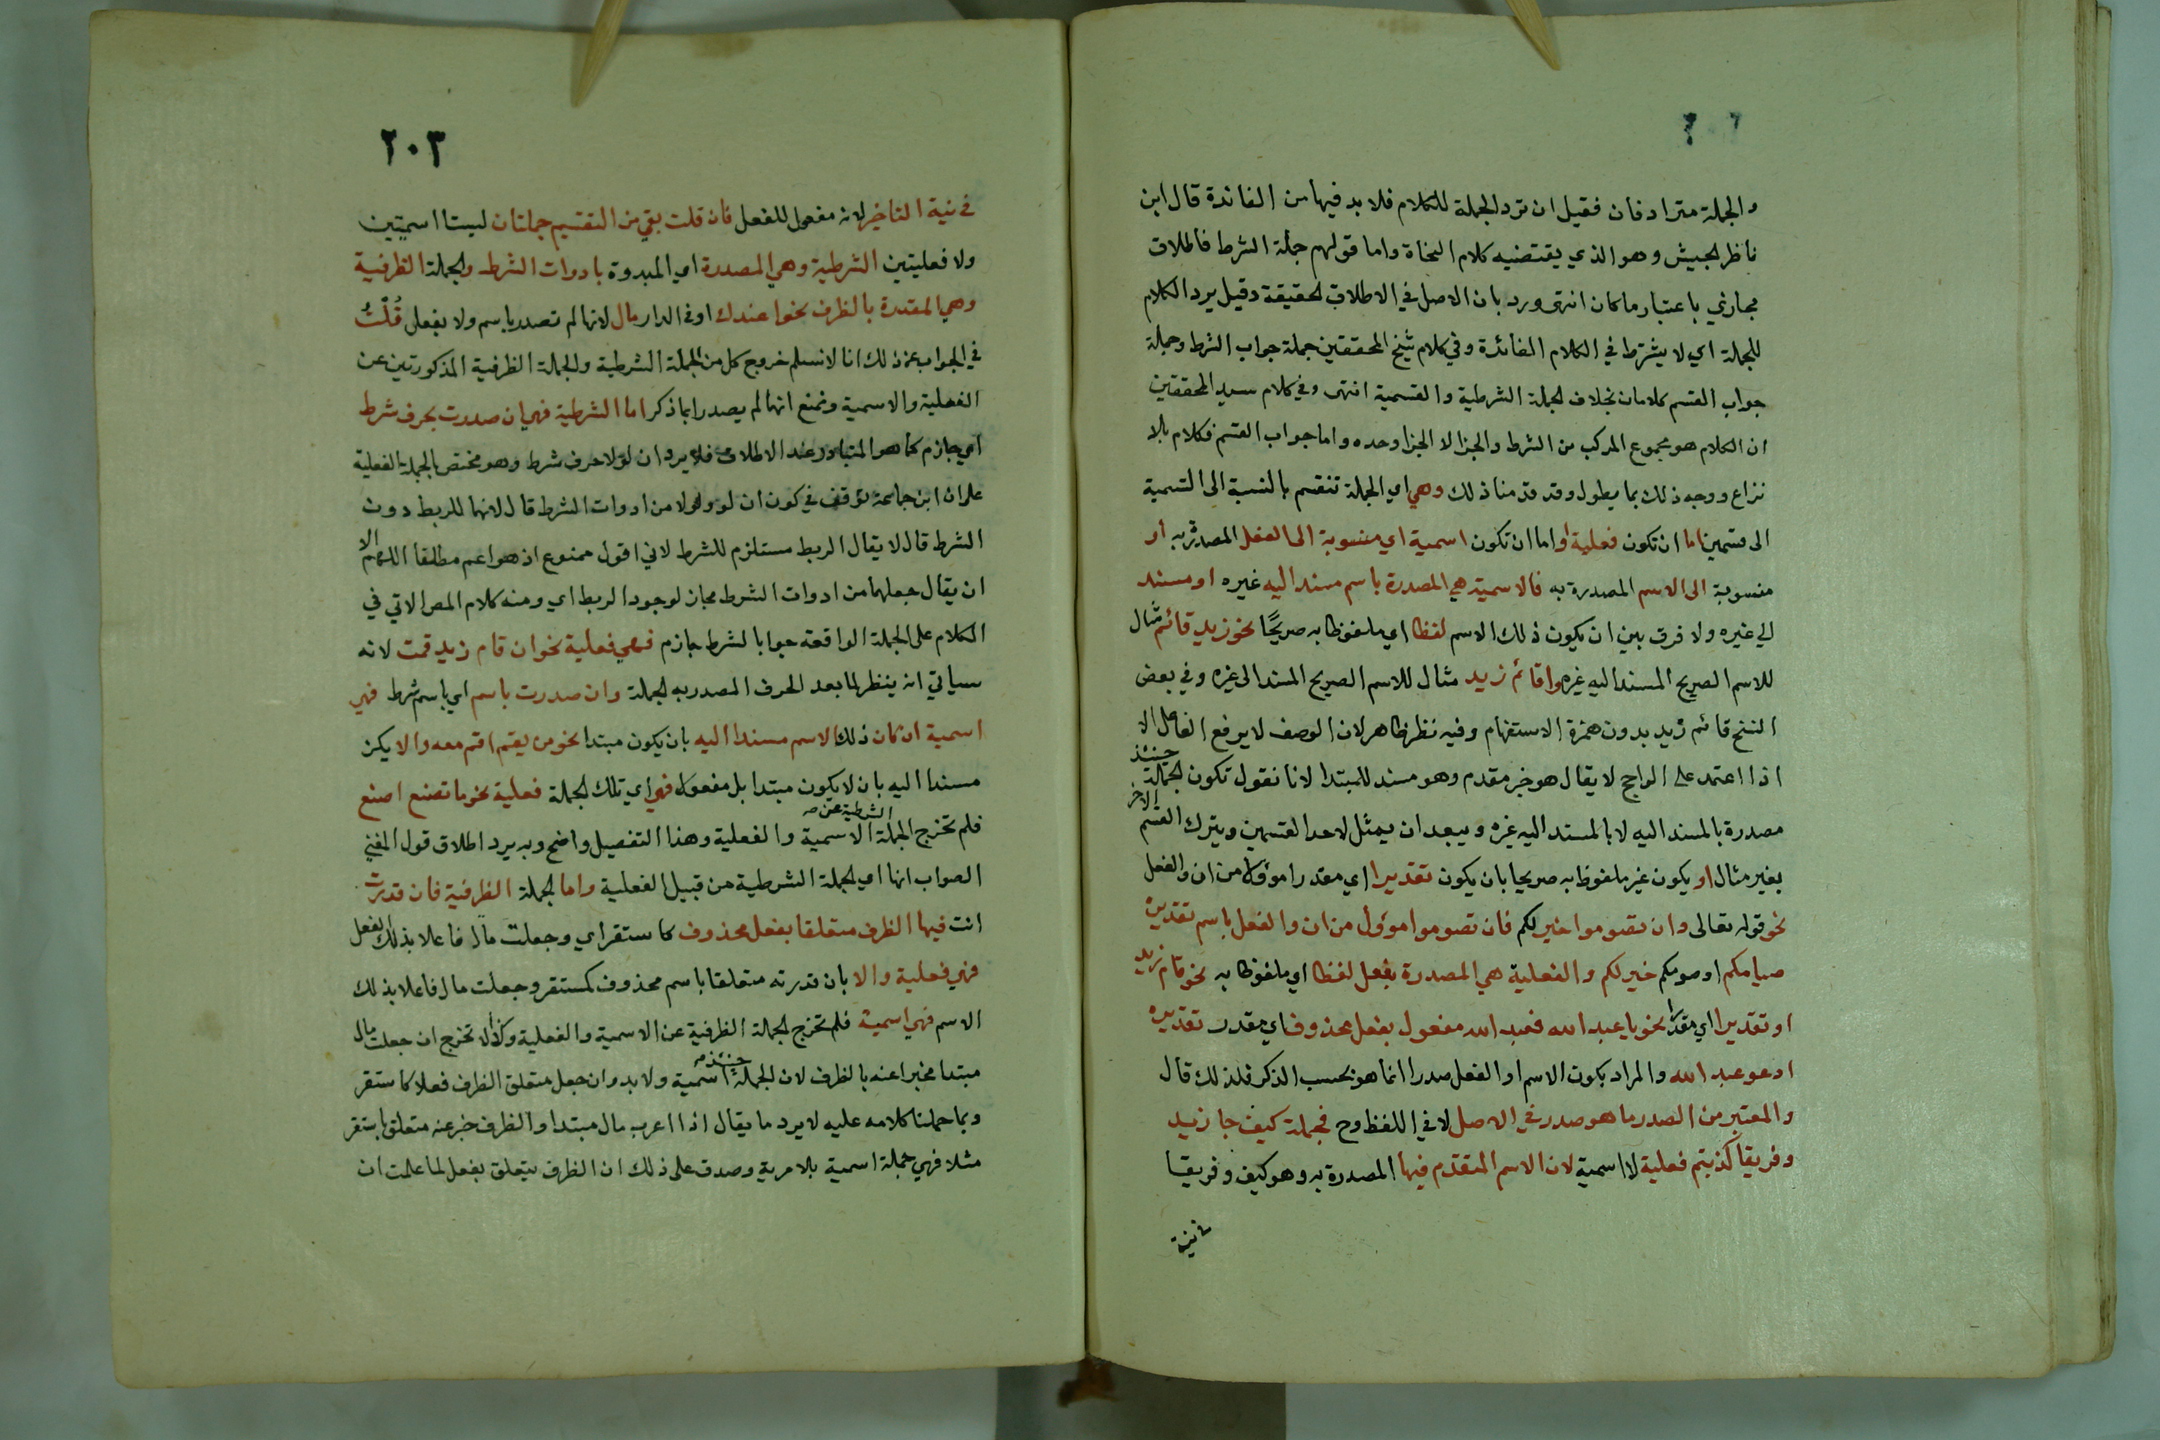 والجملة مترادفان فقيل ان ترد الجملة للكلام فلا بد فيها من الفائدة قال ابن
ناظر الجيش وهو الذي يقتضيه كلام النحاة واما قولهم جملة الشرط فاطلاق
مجازي باعتبار ما كان انتهى ورد بان الاصل في الاطلاق الحقيقة وقيل يرد الكلام
للجملة اي لا يشترط في الكلام الفائدة وفي كلام شيخ المحققين جملة جواب الشرط وجملة
جواب القسم كلامان بخلاف الجملة الشرطية والقسمية انتهى وفي كلام سيد المحققين
ان الكلام هو مجموع المركب من الشرط والجزا لا الجزا وحده واما جواب القسم فكلام بلا
نزاع ووجه ذلك بما يطول وقد قدمنا ذلك وهي اي الجملة تنقسم بالنسبة الى التسمية
الى قسمين اما ان تكون فعلية واما ان تكون اسمية اي منسوبة الى الفعل المصدرة به أو
منسوبة الى الاسم المصدرة به فالاسمية هي المصدرة باسم مسند اليه غيره او مسند
الي غيره ولا فرق بين ان يكون ذلك الاسم لفظا اي ملفوظا به صريحا نحو زيد قائم مثال
للاسم الصريح المسند اليه غيره واقائم زيد مثال للاسم الصريح المسند الى غيره وفي بعض
النسخ قائم زيد بدون همزة الاستفهام وفيه نظر ظاهر لان الوصف لا يرفع الفاعل الا
اذا اعتمد على الراجح لا يقال هو خبر مقدم وهو مسند للمبتدا لانا نقول تكون الجملة حينئذ
مصدرة بالمسند اليه لا بالمستد اليه غيره ويبعد ان يمثل لاحد القسمين ويترك القسم الاخر
بغير مثال او يكون غير ملفوظ به صريحا بان يكون تقديرا اي مقدرا مؤولا من ان والفعل
نحو قوله تعالى وان تصوموا خير لكم فان تصوموا مؤول من ان والفعل باسم تقديره
صيامكم او صومكم خير لكم والفعلية هي المصدرة بفعل لفظا اي ملفوظا به نحو قام زيد
او تقديرا اي مقدرا نحو يا عبد الله فعبد الله مفعول بفعل محذوف اي مقدر تقديره
ادعو عبد الله والمراد بكون الاسم او الفعل صدرا انما هو بحسب الذكر فلذلك قال
والمعتبر من الصدر ما هو صدر في الاصل لا في اللفظ وح فجملة كيف جا زيد
وفريقا كذبتم فعلية لا اسمية لان الاسم المتقدم فيها المصدرة به وهو كيف وفريقا
في نية
٢٠٣
في نية التاخير لانه مفعول للفعل فان قلت بقي من التقسيم جملتان ليستا اسميتين
ولا فعليتين الشرطية وهي المصدرة اي المبدوة بادوات الشرط والجملة الظرفية
وهي المقدرة بالظرف نحو اعندك او في الدار مال لانها لم تصدر باسم ولا بفعل قُلْتُ
في الجواب عن ذلك انا لا نسلم خروج كل من الجملة الشرطية والجملة الظرفية المذكورتين عن
الفعلية والاسمية ونمنع انهما لم يصدرا بما ذكر اما الشرطية فهي ان صدرت بحرف شرط
اي جازم كما هو المتبادر عند الاطلاق فلا يرد ان لولا حرف شرط وهو مختص بالجملة الفعلية
على ان ابن جماعة توقف في كون ان لو ولولا من ادوات الشرط قال لانها للربط دون
الشرط قال لا يقال الربط مستلزم للشرط لاني اقول ممنوع اذ هو اعم مطلقا اللهم الا
ان يقال جعلهما من ادوات الشرط مجاز لوجود الربط اي ومنه كلام المص الاتي في
الكلام على الجملة الواقعة جوابا لشرط جازم فهي فعلية نحو ان قام زيد قمت لانه
سياتي انه ينظر لما بعد الحرف المصدر به الجملة وان صدرت باسم اي باسم شرط فهي
اسمية ان كان ذلك الاسم مسندا اليه بان يكون مبتدا نحو من يقم اقم معه والا يكن
مسندا اليه بان لا يكون مبتدا بل مفعولا فهي اي تلك الجملة فعلية نحو ما تصنع اصنع
فلم تخرج الجملة الشرطية عن الاسمية والفعلية وهذا التفصيل واضح وبه يرد اطلاق قول المغني
الصواب انها اي الجملة الشرطية من قبيل الفعلية واما الجملة الظرفية فان قدرت
انت فيها الظرف متعلقا بفعل محذوف كاستقر اي وجعلت مال فاعلا بذلك الفعل
فهي فعلية والا بان قدرته متعلقا باسم محذوف كمستقر وجعلت مال فاعلا بذلك
الاسم فهي اسمية فلم تخرج الجملة الظرفية عن الاسمية والفعلية وكذا لا تخرج ان جعلت مال
مبتدا مخبرا عنه بالظرف لان الجملة حينئذ اسمية ولا بد وان جعل متعلق الظرف فعلا كاستقر
وبما حملنا كلامه عليه لا يرد ما يقال اذا اعرب مال مبتدا والظرف خبر عنه متعلق باستقر
مثلا فهي جملة اسمية بلا مرية وصدق على ذلك ان الظرف يتعلق بفعل لما علمت ان